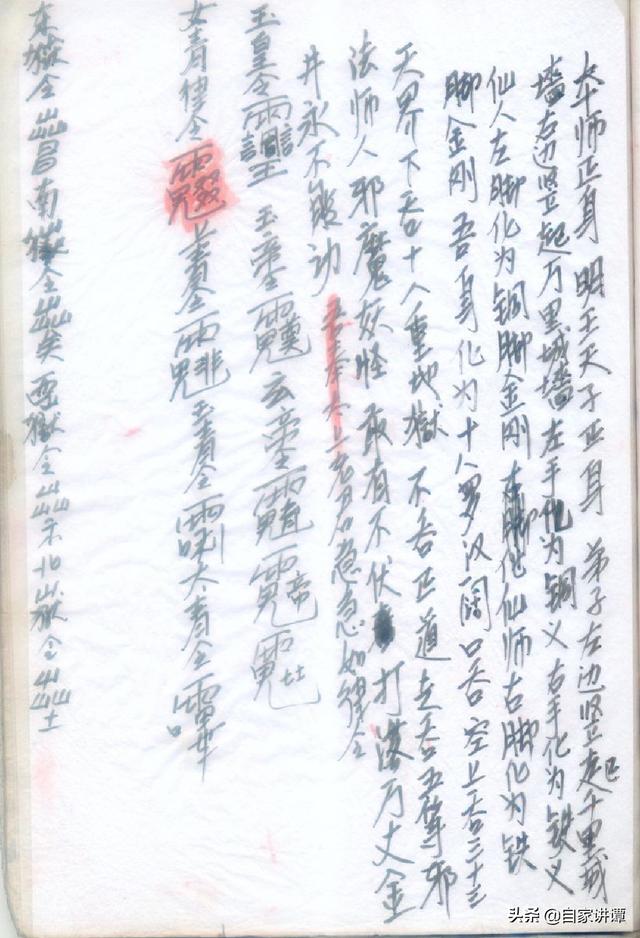 本师正身 明王天子正身 弟子左边竖起千里城
墙右边竖起万里城墙左手化为铜叉右手化为铁叉
仙人左脚化为铜脚金刚 右脚化仙师右脚化为铁
脚金刚 吾身化为十八罗汉阔口吞空上吞三十三
天界下吞十八重地狱 不吞正道走吞五等邪
法师人邪魔妖怪 敢有不伏 打落万丈金
井永不能动 吾奉太上老君急急如律令
玉皇令 玉帝令 玄帝令
女青律令 上青令 玉青令 太青令
东狱令 昌南狱令 西狱令 北狱令
头条 @自家讲谭